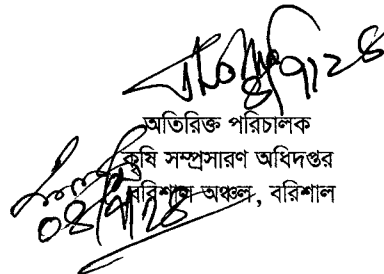 ৪/৭/২৪
অতিরিক্ত পরিচালক
কৃষি সম্প্রসারণ অধিদপ্তর
বরিশাল অঞ্চল, বরিশাল
০৪/৭/২৪